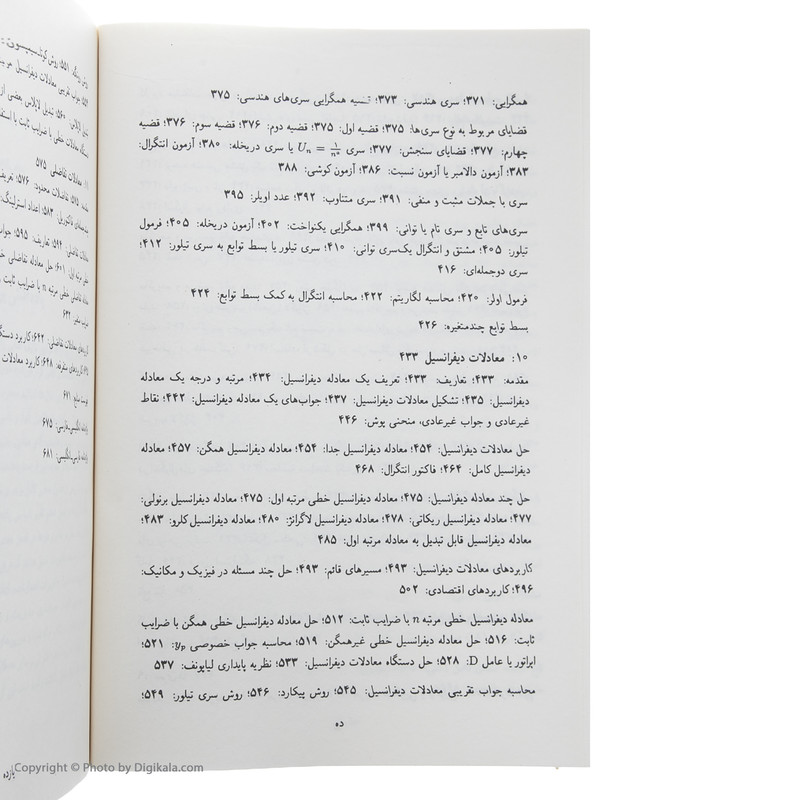 همگرایی: ۳۷۱؛ سری هندسی: ۳۷۳؛ قضیه همگرایی سری‌های هندسی: ۳۷۵
قضایای مربوط به نوع سری‌ها: ۳۷۵؛ قضیه اول: ۳۷۵؛ قضیه دوم: ۳۷۶؛ قضیه سوم: ۳۷۶؛ قضیه
چهارم: ۳۷۷؛ قضایای سنجش: ۳۷۷؛ سری Uₙ = 1/nᵅ یا سری دریخله: ۳۸۰؛ آزمون انتگرال:
۳۸۳؛ آزمون دالامبر یا آزمون نسبت: ۳۸۶؛ آزمون کوشی: ۳۸۸
سری با جملات مثبت و منفی: ۳۹۱؛ سری متناوب: ۳۹۲؛ عدد اویلر: ۳۹۵
سری‌های تابع و سری تام یا توانی: ۳۹۹؛ همگرایی یکنواخت: ۴۰۲؛ آزمون دریخله: ۴۰۵؛ فرمول
تیلور: ۴۰۵؛ مشتق و انتگرال یک‌سری توانی: ۴۱۰؛ سری تیلور یا بسط توابع به سری تیلور: ۴۱۲؛
سری دوجمله‌ای: ۴۱۶
فرمول اولر: ۴۲۰؛ محاسبه لگاریتم: ۴۲۲؛ محاسبه انتگرال به کمک بسط توابع: ۴۲۴
بسط توابع چندمتغیره: ۴۲۶
۱۰: معادلات دیفرانسیل ۴۳۳
مقدمه: ۴۳۳؛ تعاریف: ۴۳۳؛ تعریف یک معادله دیفرانسیل: ۴۳۴؛ مرتبه و درجه یک معادله
دیفرانسیل: ۴۳۵؛ تشکیل معادلات دیفرانسیل: ۴۳۷؛ جواب‌های یک معادله دیفرانسیل: ۴۴۲؛ نقاط
غیرعادی و جواب غیرعادی، منحنی پوش: ۴۴۶
حل معادلات دیفرانسیل: ۴۵۴؛ معادله دیفرانسیل جدا: ۴۵۴؛ معادله دیفرانسیل همگن: ۴۵۷؛ معادله
دیفرانسیل کامل: ۴۶۴؛ فاکتور انتگرال: ۴۶۸
حل چند معادله دیفرانسیل: ۴۷۵؛ معادله دیفرانسیل خطی مرتبه اول: ۴۷۵؛ معادله دیفرانسیل برنولی:
۴۷۷؛ معادله دیفرانسیل ریکاتی: ۴۷۸؛ معادله دیفرانسیل لاگرانژ: ۴۸۰؛ معادله دیفرانسیل کلرو: ۴۸۳؛
معادله دیفرانسیل قابل تبدیل به معادله مرتبه اول: ۴۸۵
کاربردهای معادلات دیفرانسیل: ۴۹۳؛ مسیرهای قائم: ۴۹۳؛ حل چند مسئله در فیزیک و مکانیک:
۴۹۶؛ کاربردهای اقتصادی: ۵۰۲
معادله دیفرانسیل خطی مرتبه n با ضرایب ثابت: ۵۱۲؛ حل معادله دیفرانسیل خطی همگن با ضرایب
ثابت: ۵۱۶؛ حل معادله دیفرانسیل خطی غیرهمگن: ۵۱۹؛ محاسبه جواب خصوصی yₚ: ۵۲۱؛
اپراتور یا عامل D: ۵۲۸؛ حل دستگاه معادلات دیفرانسیل: ۵۳۳؛ نظریه پایداری لیاپونف: ۵۳۷
محاسبه جواب تقریبی معادلات دیفرانسیل: ۵۴۵؛ روش پیکارد: ۵۴۶؛ روش سری تیلور: ۵۴۹؛
ده
معادلات تفاضلی ۵۷۵
یازده
Copyright © Photo by Digikala.com